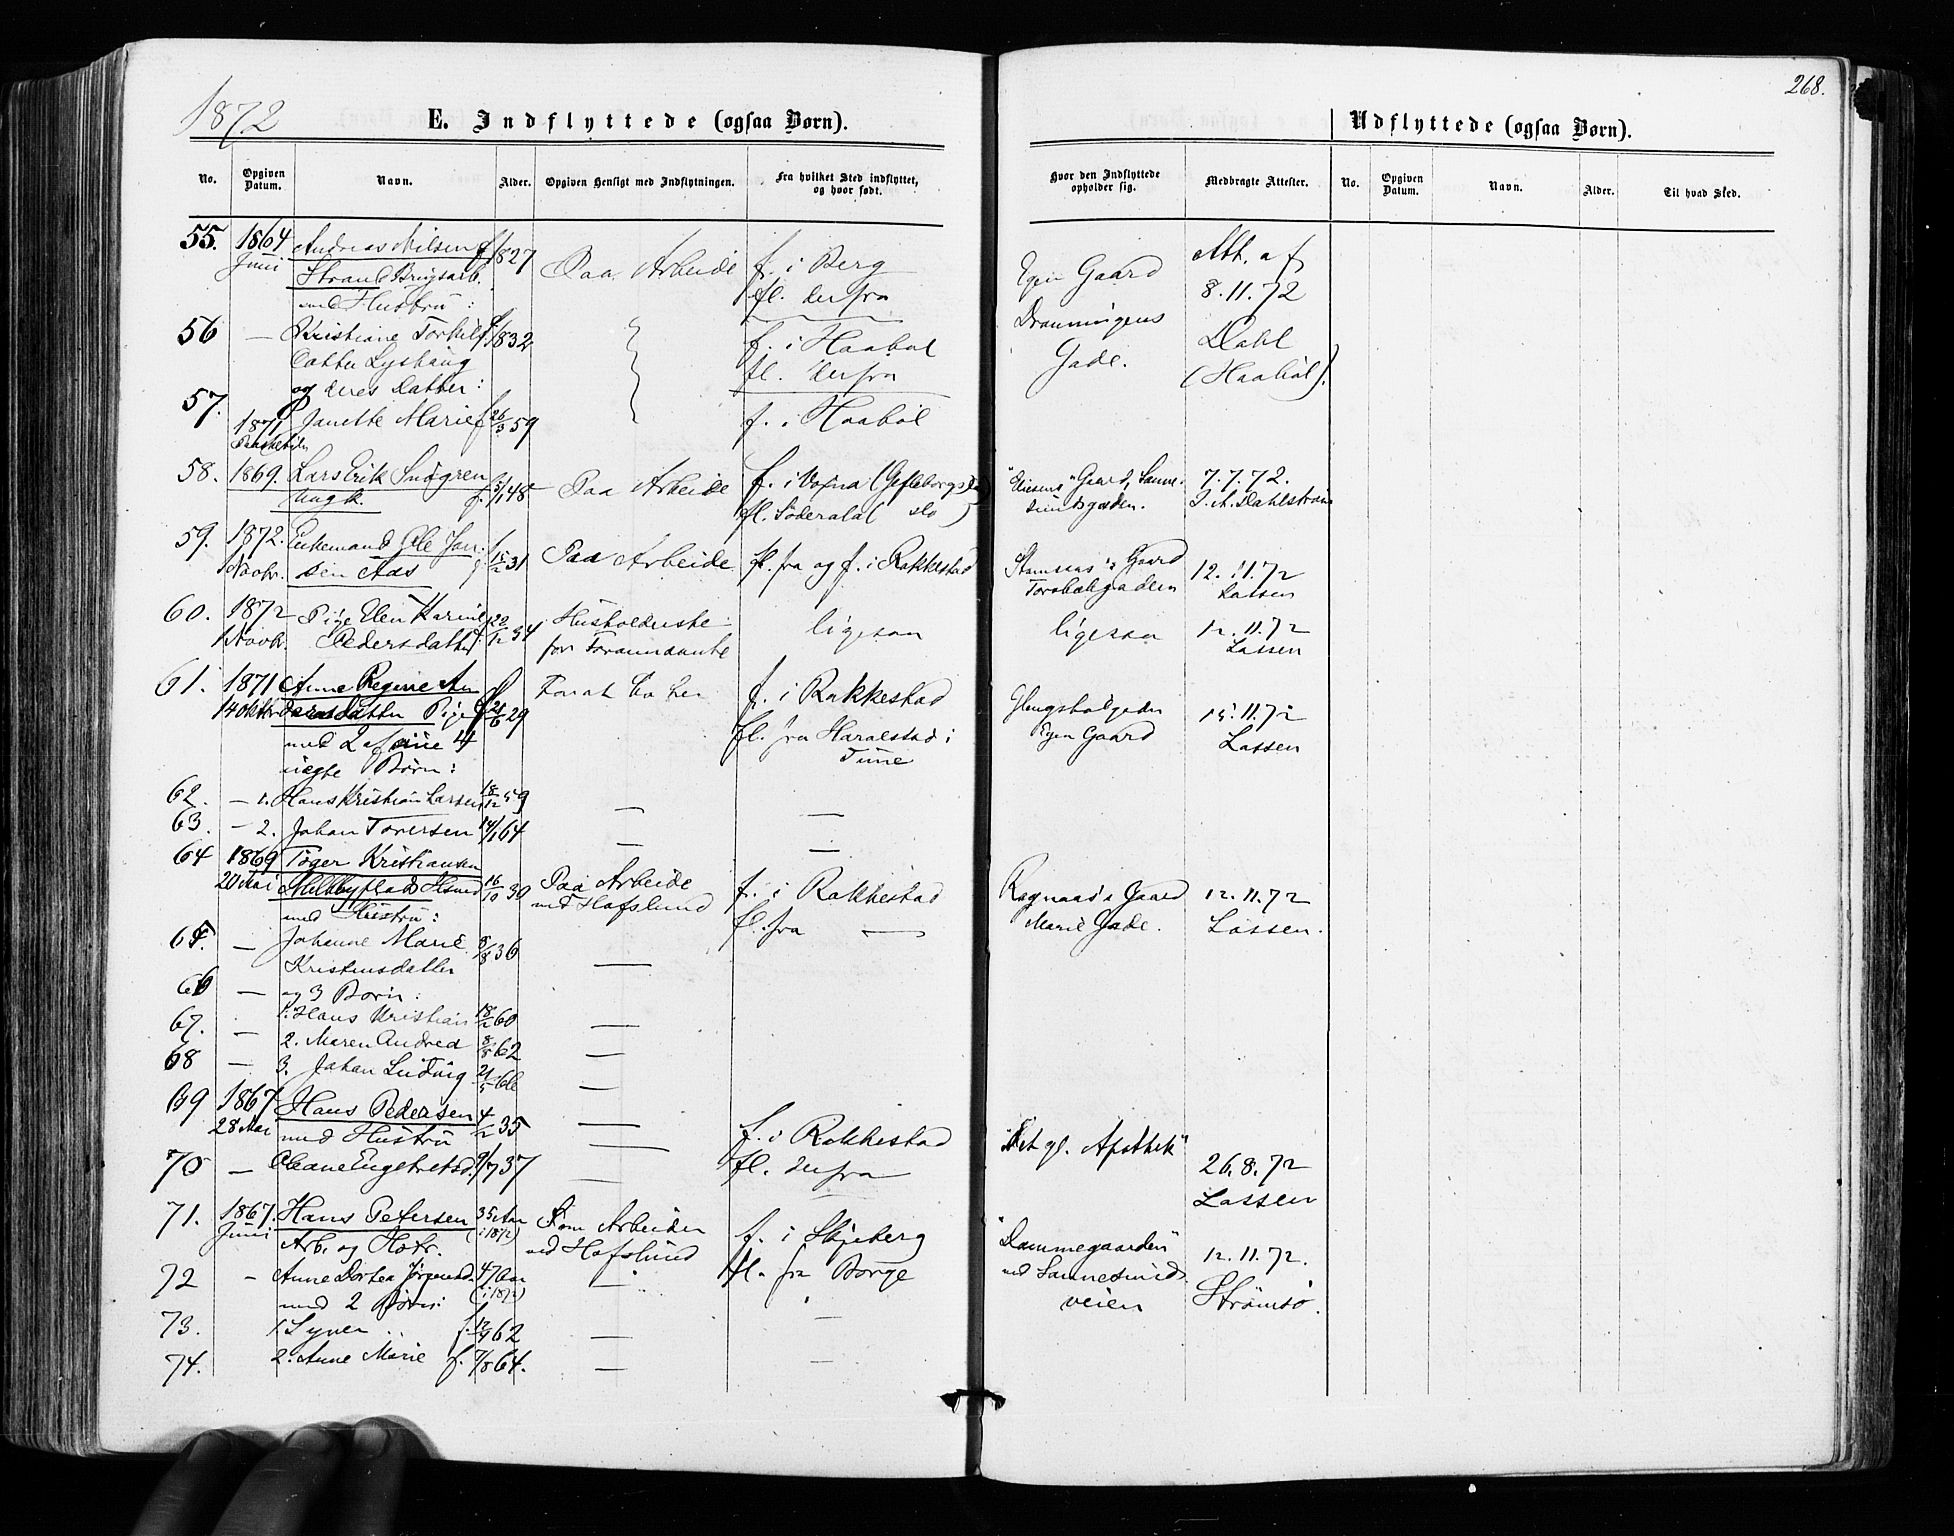 268.
1872
E. Indflyttede (ogsaa Børn).
Udflyttede (ogsaa Børn).
No. Opgiven Datum. Navn. Alder. Opgiven Hensigt med Indflytningen. Fra hvilket Sted indflyttet, og hvor født.
Hvor den Indflyttede opholder sig. Medbragte Attester. No. Opgiven Datum. Navn. Alder. Til hvad Sted.
55. 1864 Andreas Nilsen f. 1827 Paa Arbeide f. i Berg Egen Gaard Att. af
Juni Strand Brugsarb. fl. derfra 8.11.72
med Hustru: Dronningens
56 — Kristiane Torkils 1832 f. i Haabøl Gade. Dahl
Datter Lyshaug fl. derfra (Haabøl).
og deres Datter:
57. 1871 Janette Marie f 26/3 59 f. i Haabøl
58. 1869. Lars Erik Sndgren f. 5/1 48 Paa Arbeide f. i (Gefleborgs Gaard, Sanne- 7.7.72.
Ungk. fl. Söderala ( do ) sundsgaden. Dahlström
59. 1872. Enkemand Ole Jan- 15/2 31 Paa Arbeide fl. fra og f. i Rakkestad Gaard 12.11.72
Novbr. sen Aas Lassen
60. 1872 Pige Elen Karine 22/12 34 Husholderske ligesaa ligesaa 12.11.72
Novbr. Pedersdatter for Forannævnte Lassen
61. 1871 Anne Regine An f. i Rakkestad Glengsholgaden 15.11.72
14 Oktbr dersdatter Pige f 21/6 29 fl. fra Haralstad i Egen Gaard Lassen
med 2 af sine 4 Tune
uægte Børn:
62. — 1. Hans Kristian Larsen 18/12 59 — —
63. — 2. Johan Toversen 14/1 64 — —
64 1869 Tøger Kristiansen
20 Mai Husmd 16/10 30 Paa Arbeide f. i Rakkestad Gaard 12.11.72
med Hustru: ved Hafslund fl. fra — Marie Gade. Lassen.
65. — Johanne Marie 8/8 36
Kristensdatter —
66 — og 3 Børn:
1. Hans Kristian 18/2 60 —
67. — 2. Maren Andrea 8/8 62 —
68 — 3. Johan Ludvig 21/5 66 —
69 1867 Hans Pedersen 4/2 35 — f. i Rakkestad "Det gl. Apothek"
28 Mai med Hustru — fl. derfra 26.8.72
70 — Oleane Engebretsd. 9/7 37 — Lassen
71. 1867. Hans Petersen 35 Aar Som Arbeider f. i Skjeberg "Dammegaarden" 12.11.72.
Juni Arb. og Hstr. (i 1872) ved Hafslund fl. fra Borge ved Sannesunds Strömsö.
72 - Anne Dortea Jörgensd. 47 Aar — veien
med 2 Børn: (i 1872)
73. 1. Syver f. 12/4 62 — —
74. 2. Anne Marie f. 7/8 64. — —